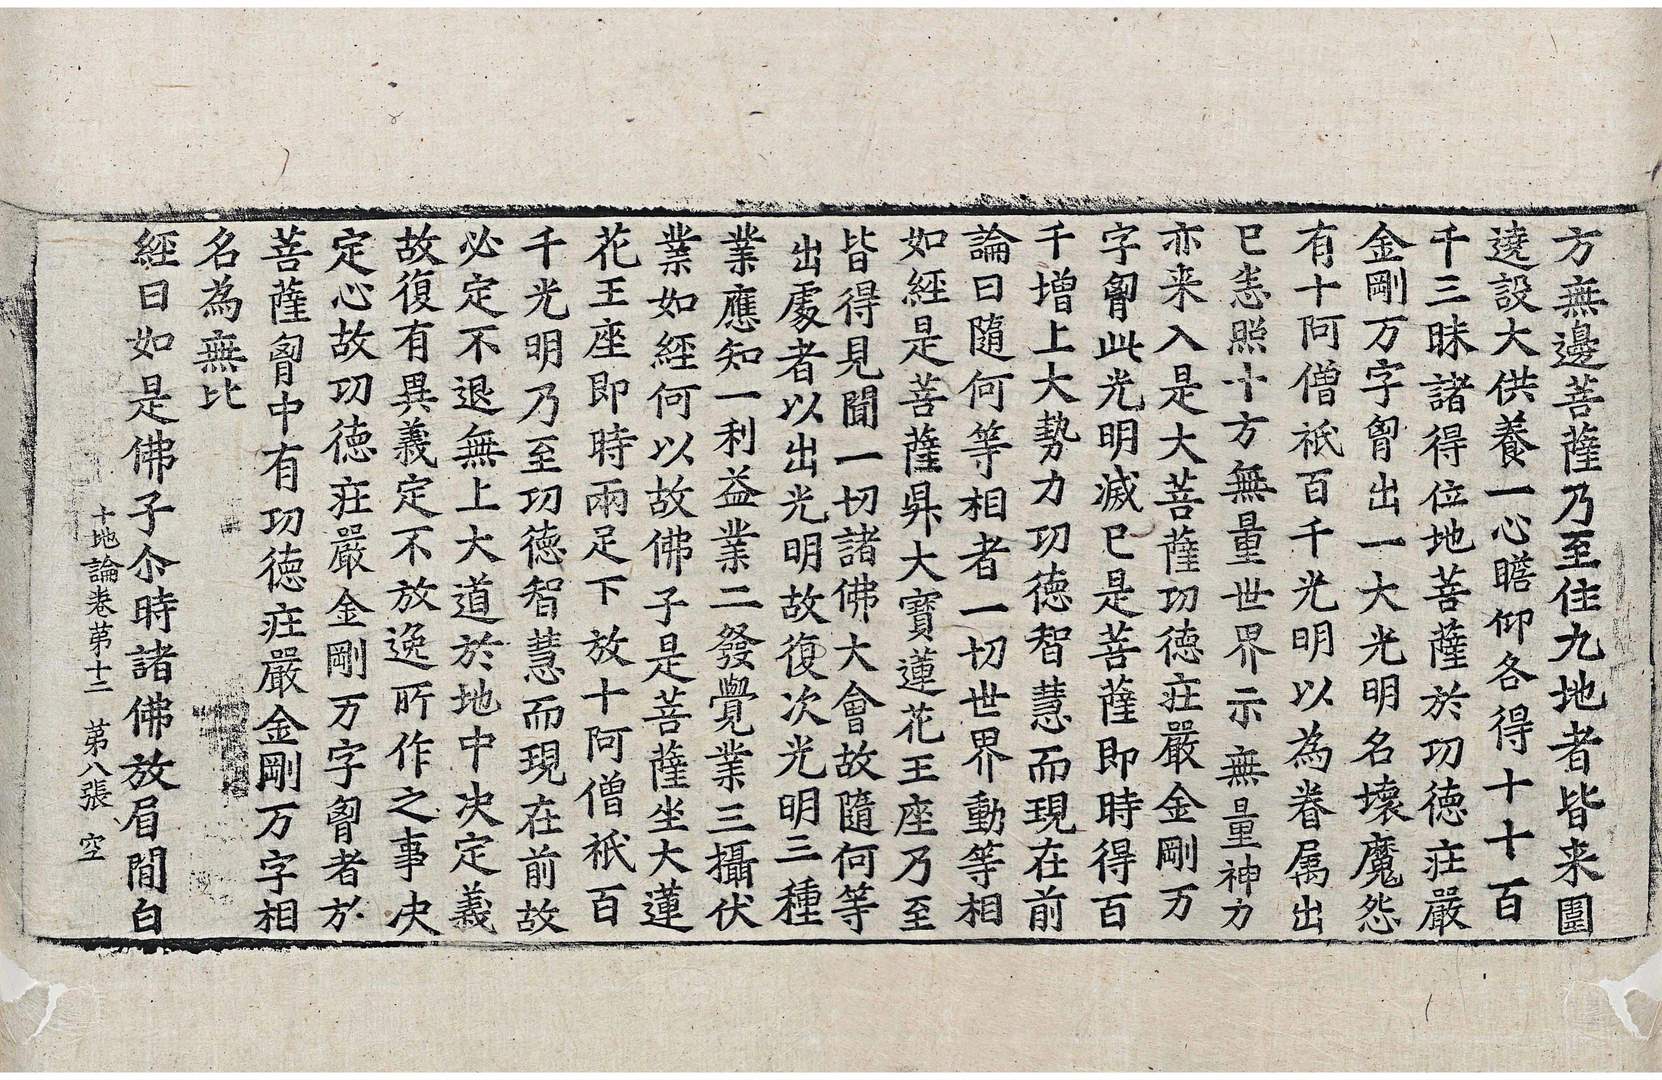 方無邊菩薩乃至住九地者皆来圍
遶設大供養一心瞻仰各得十十百
千三昧諸得位地菩薩於功徳㽵嚴
金剛万字𦚾出一大光明名壊魔怨
有十阿僧祇百千光明以為眷属出
已悉照十方無量世界示無量神力
亦来入是大菩薩功徳㽵嚴金剛万
字𦚾此光明滅已是菩薩即時得百
千増上大勢力功徳智慧而現在前
論曰隨何等相者一切世界動等相
如經是菩薩昇大寶蓮花王座乃至
皆得見聞一切諸佛大會故隨何等
出處者以出光明故復次光明三種
業應知一利益業二發覺業三攝伏
業如經何以故佛子是菩薩坐大蓮
花王座即時兩足下放十阿僧祇百
千光明乃至功徳智慧而現在前故
必定不退無上大道於地中決定義
故復有異義定不放逸所作之事决
定心故功徳㽵嚴金剛万字𦚾者於
菩薩𦚾中有功徳㽵嚴金剛万字相
名為無比
經曰如是佛子尒時諸佛放眉間白
十地論卷第十二 第八張 空